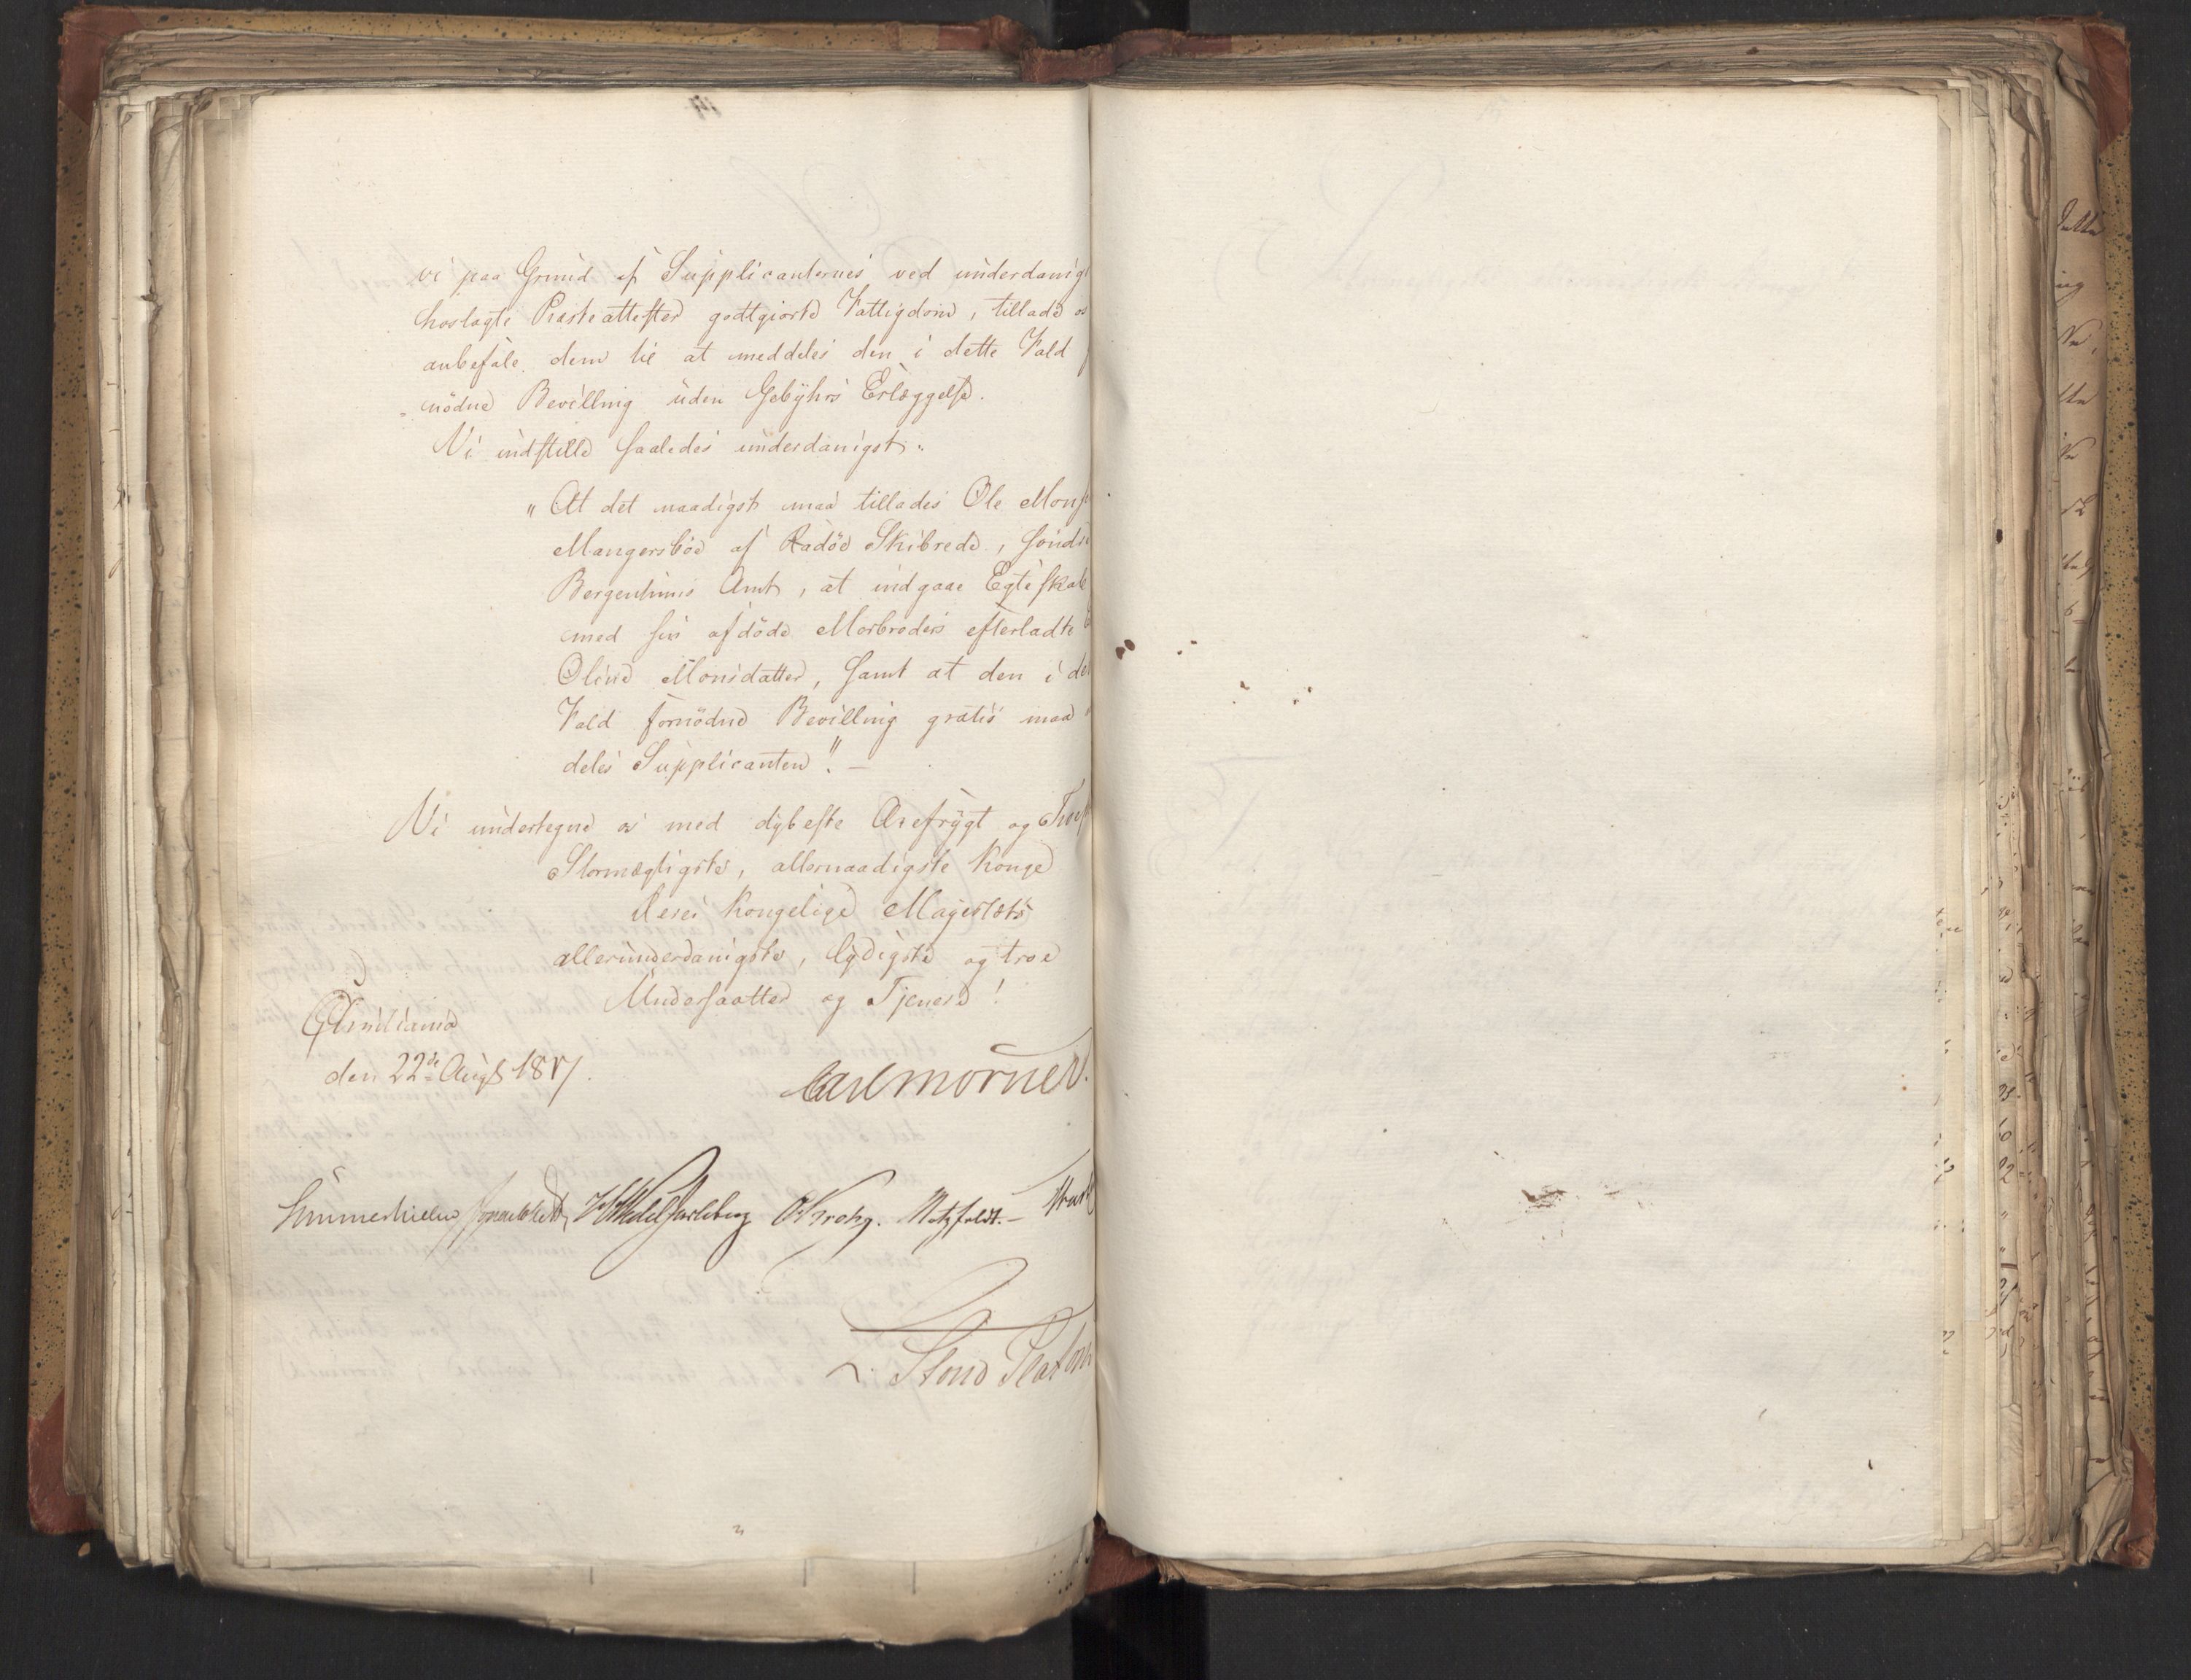 vi paa Grund af Supplicanternes ved underdanigst
hoslagte Præsteattester godtgiorte Fattigdom, tillade os
anbefale dem til at meddeles den i dette Fald
nödne Bevilling uden Gebyhrs Erlæggelse.
Vi indstille saaledes underdanigst:
"At det naadigst maa tillades Ole Mons
Mangersböe af Radöe Skibrede, söndre
Bergenhuus Amt, at indgaae Egteskab
med sin afdöde Morbroders efterladte
Oline Monsdatter, samt at den i de
Fald fornödne Bevilling gratis maa
deles Supplicanten". —
Vi undertegne os med dybeste Ærefrygt og Troes
Stormægtigste, allernaadigste Konge
Deres Kongelige Majestæts
allerunderdanigste, lydigste og troe
Undersaatter og Tjenere!
Christiania
den 22de Augt 1817.
Carl Mörner.
Sommerhielm HWedelJarlsberg CKrohg. Motzfeldt. —